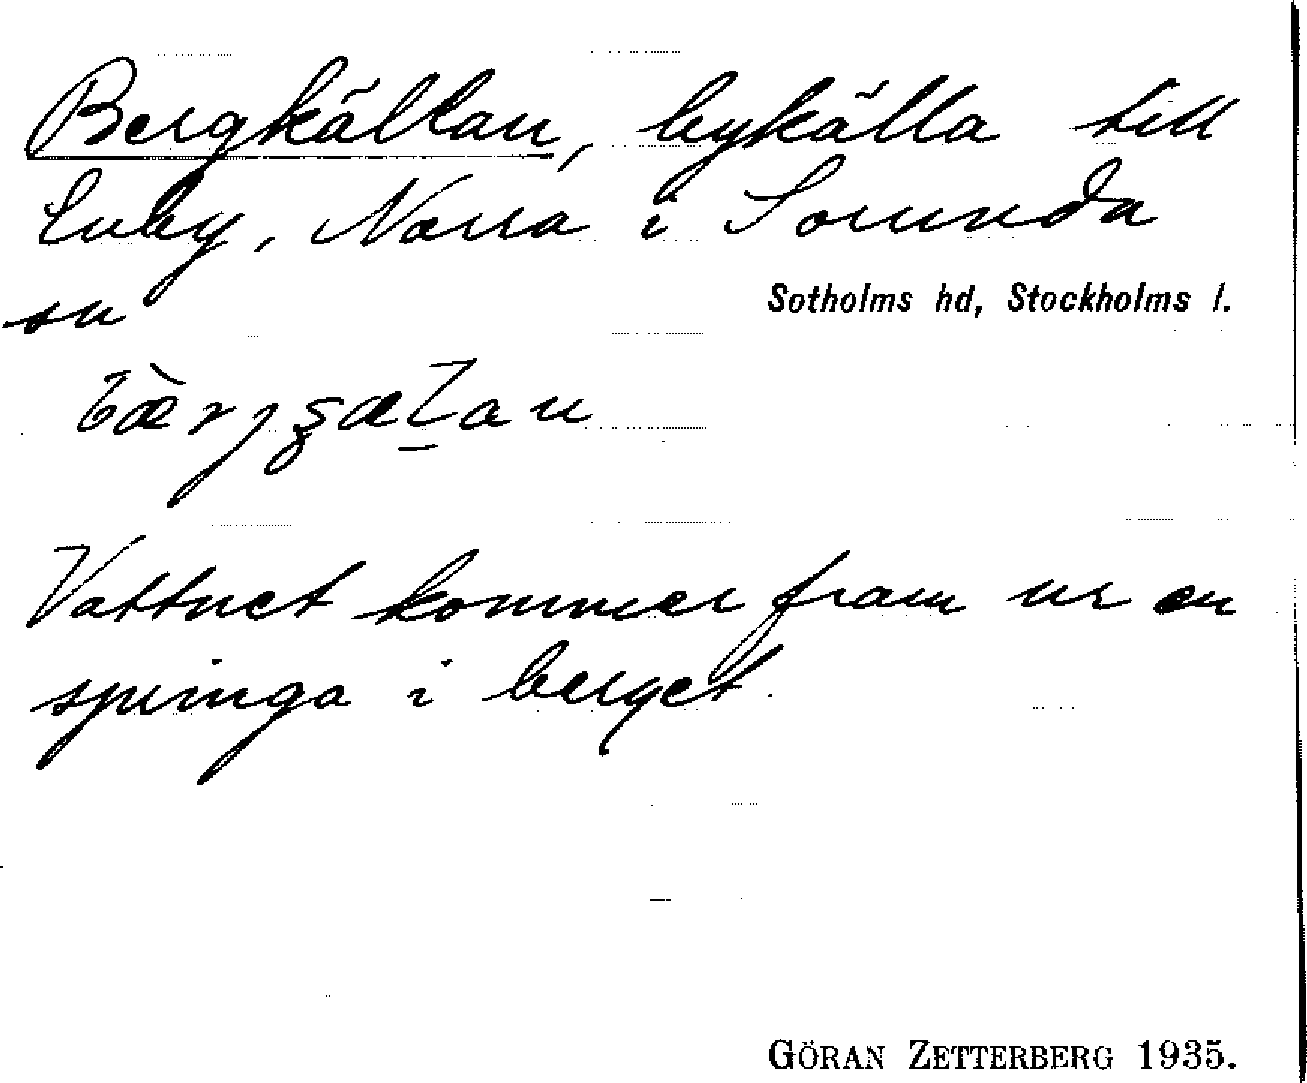 Bergkällan, bykälla till
Enby, Norra i Sorunda
sn
Sotholms hd, Stockholms l.
Vattnet kommer fram ur en
springa i berget.
GÖRAN ZETTERBERG 1935.